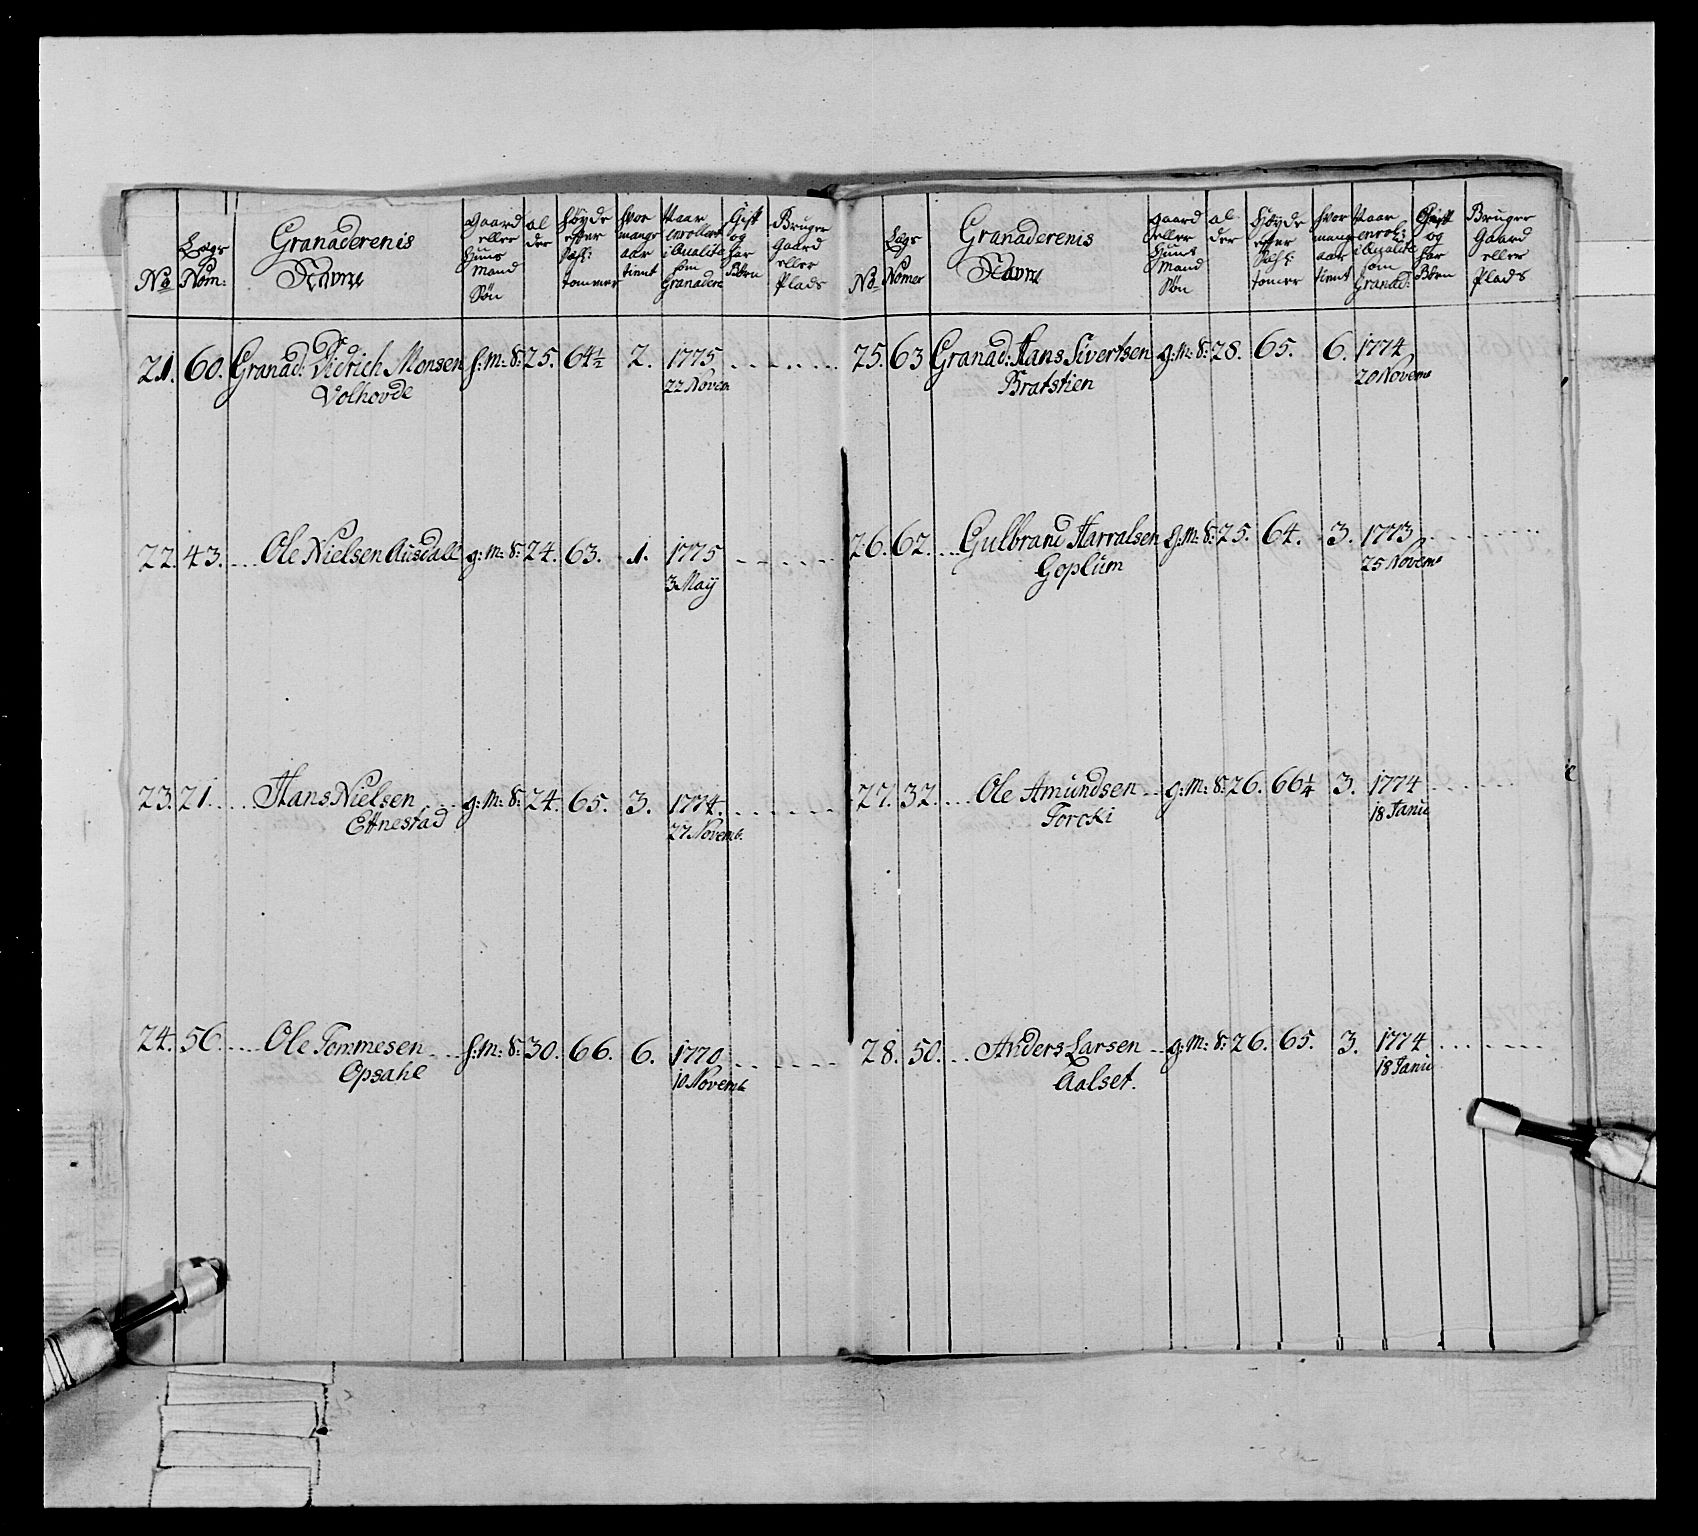 No
Lægs
Nom:
Granaderenis
Navne
Gaard
eller
Huus
Mand
Søn
al
der
Høyde
efter
tommer
hvor
mange
aar
tient
Aar
enrolleret
i Qualite
som
Granadere
Gift
og
har
Børn
Bruger
Gaard
eller
Plads
21. 60. Granad: Didrich Monsen h: m: S: 25. 64½ 2. 1775
Volhovde 22 Novem
22. 43. Ole Nielsen Ausdall g: m: S: 24. 63. 1. 1775
3 Maÿ
23. 21. Hans Nielsen g: m: S: 24. 65. 3. 1774.
Ettnestad 27 Novemb.
24. 56. Ole Tommesen h: m: S: 30. 66. 6. 1770
Opsahl 10 Novemb
No
Lægs
Nomer
Granaderenis
Navne
Gaard
eller
Huus
Mand
Søn
al
der
Høyde
efter
tomer
hvor
mange
aar
tient
Aar
enrol:
i Qualite
som
Granad:
Gift
og
har
Børn
Bruger
Gaard
eller
Plads
25. 63 Granad: Hans Sivertsen g: m: S: 28. 65. 6. 1774
Bratstien 20 Novem
26. 62. Gulbrand Harralsen g: m: S: 25. 64. 3. 1773
Goplum 25 Novem
27. 32. Ole Amundsen g: m: S: 26. 66¼ 3. 1774
18 Janu
28. 50. Anders Larsen g: m: S: 26. 65. 3. 1774
Aalset. 18 Janu